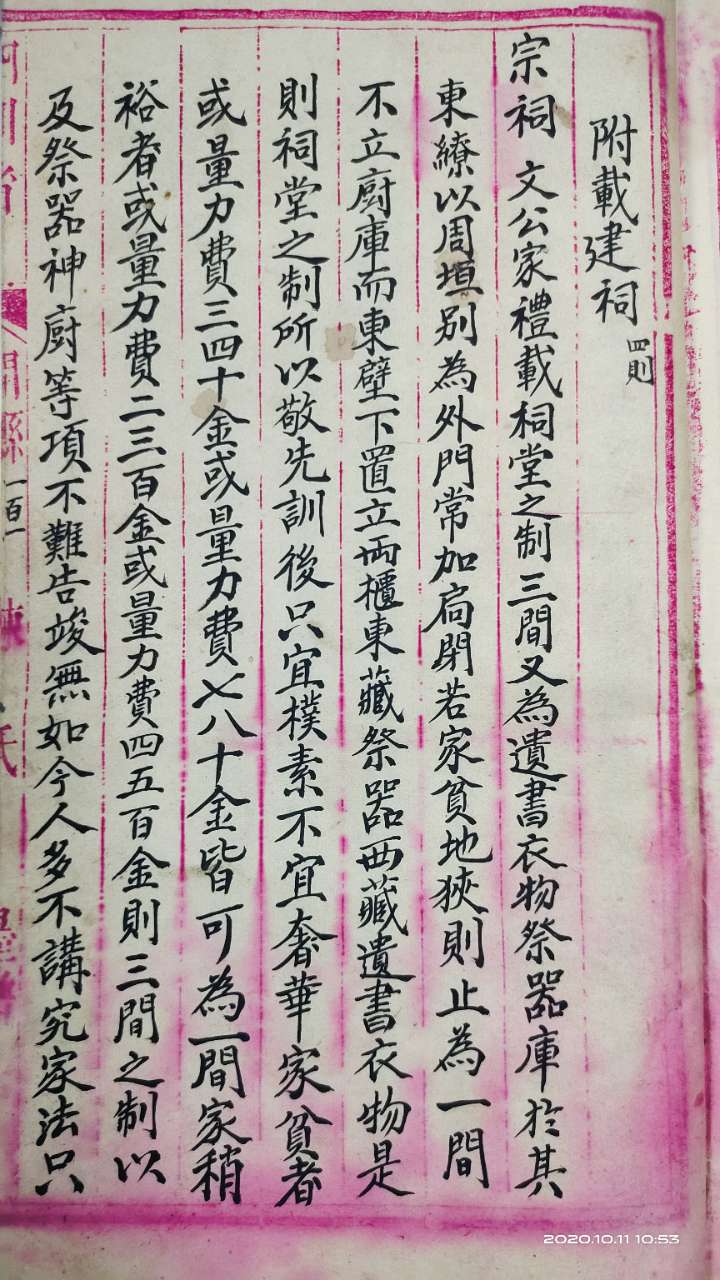 附載建祠 四則
宗祠 文公家禮載祠堂之制三間又為遺書衣物祭器庫於其
東繚以周垣別為外門常加扃閉若家貧地狹則止為一間
不立廚庫而東壁下置立両櫃東藏祭器西藏遺書衣物是
則祠堂之制所以敬先訓後只宜樸素不宜奢華家貧者
或量力費三四十金或量力費七八十金皆可為一間家稍
裕者或量力費二三百金或量力費四五百金則三間之制以
及祭器神廚等項不難告竣無如今人多不講究家法只
四川省 開縣 一百一 陳氏
2020.10.11 10:53